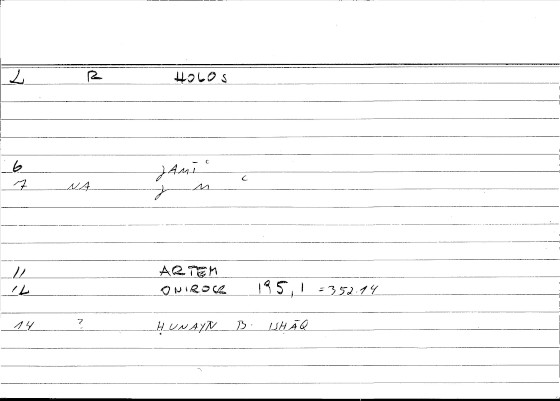 L R HOLOS
6 jAMĪʿ
7 NA j M ʿ
11 ARTEM
12 ONIROCR 195,1 =352.14
14 ? ḤUNAYN B. ISḤĀQ